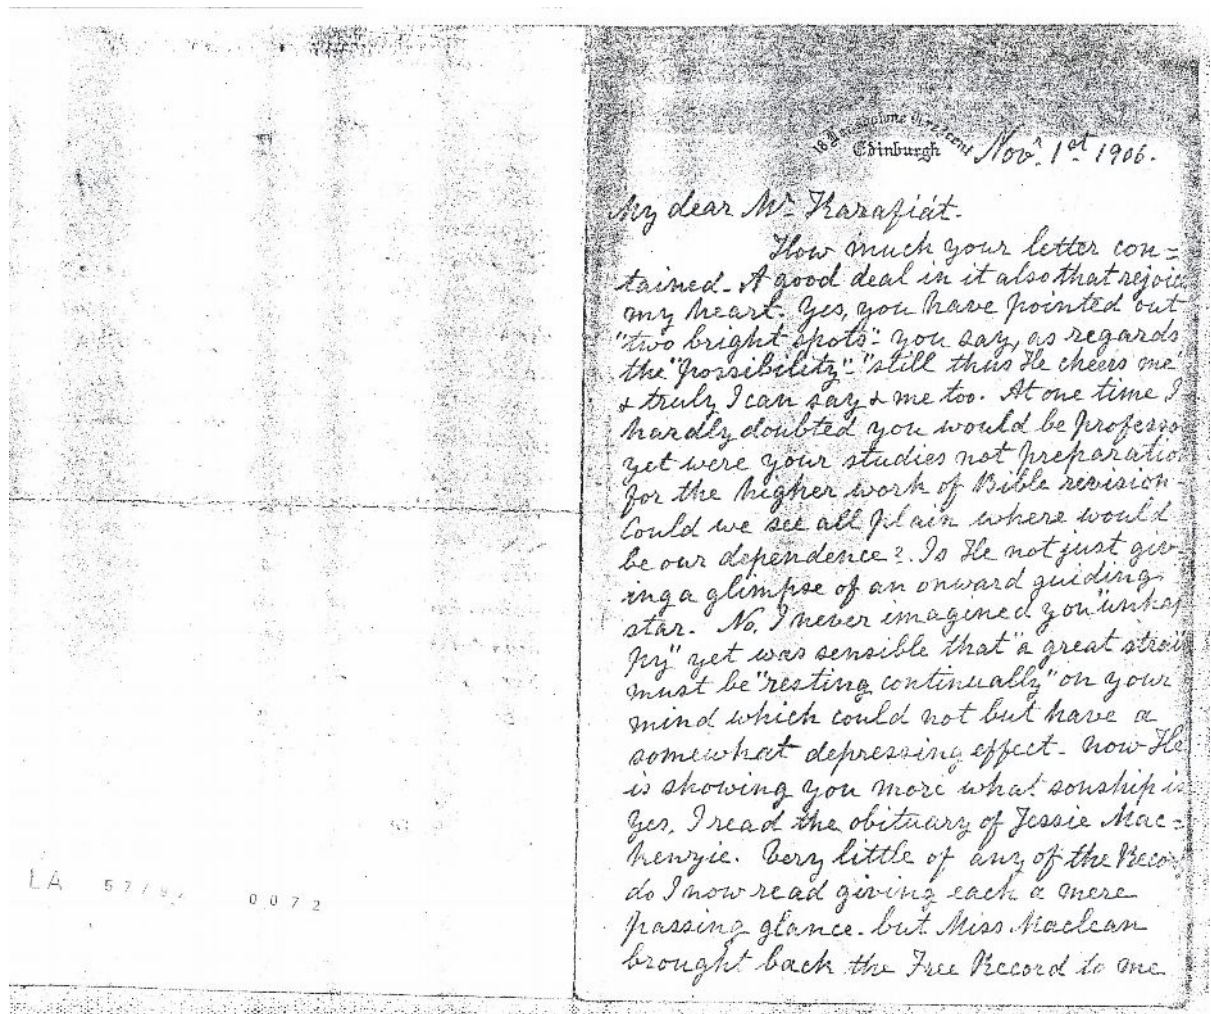 18 Crescent
Edinburgh
Novr. 1st 1906.
My dear Mr Karafiát.
How much your letter con=
tained_ A good deal in it also that rejoic
my heart. Yes, you have pointed out
"two bright spots"- you say, as regards
the "possibility"- "still thus He cheers me"
& truly I can say & me too. At one time I
hardly doubted you would be professo
yet were your studies not preparatio
for the higher work of Bible revision-
Could we see all plain where would
be our dependence?. Is He not just giv-
ing a glimpse of an onward guiding
star. No, I never imagined you "unhap
py" yet was sensible that "a great strain"
must be "resting continually" on your
mind which could not but have a
somewhat depressing effect_ now He
is showing you more what sonship is
Yes, I read the obituary of Jessie Mac=
kenzie. Very little of any of the Recor
do I now read giving each a mere
passing glance. but Miss Maclean
brought back the Free Record to me
LA 57/92 0072